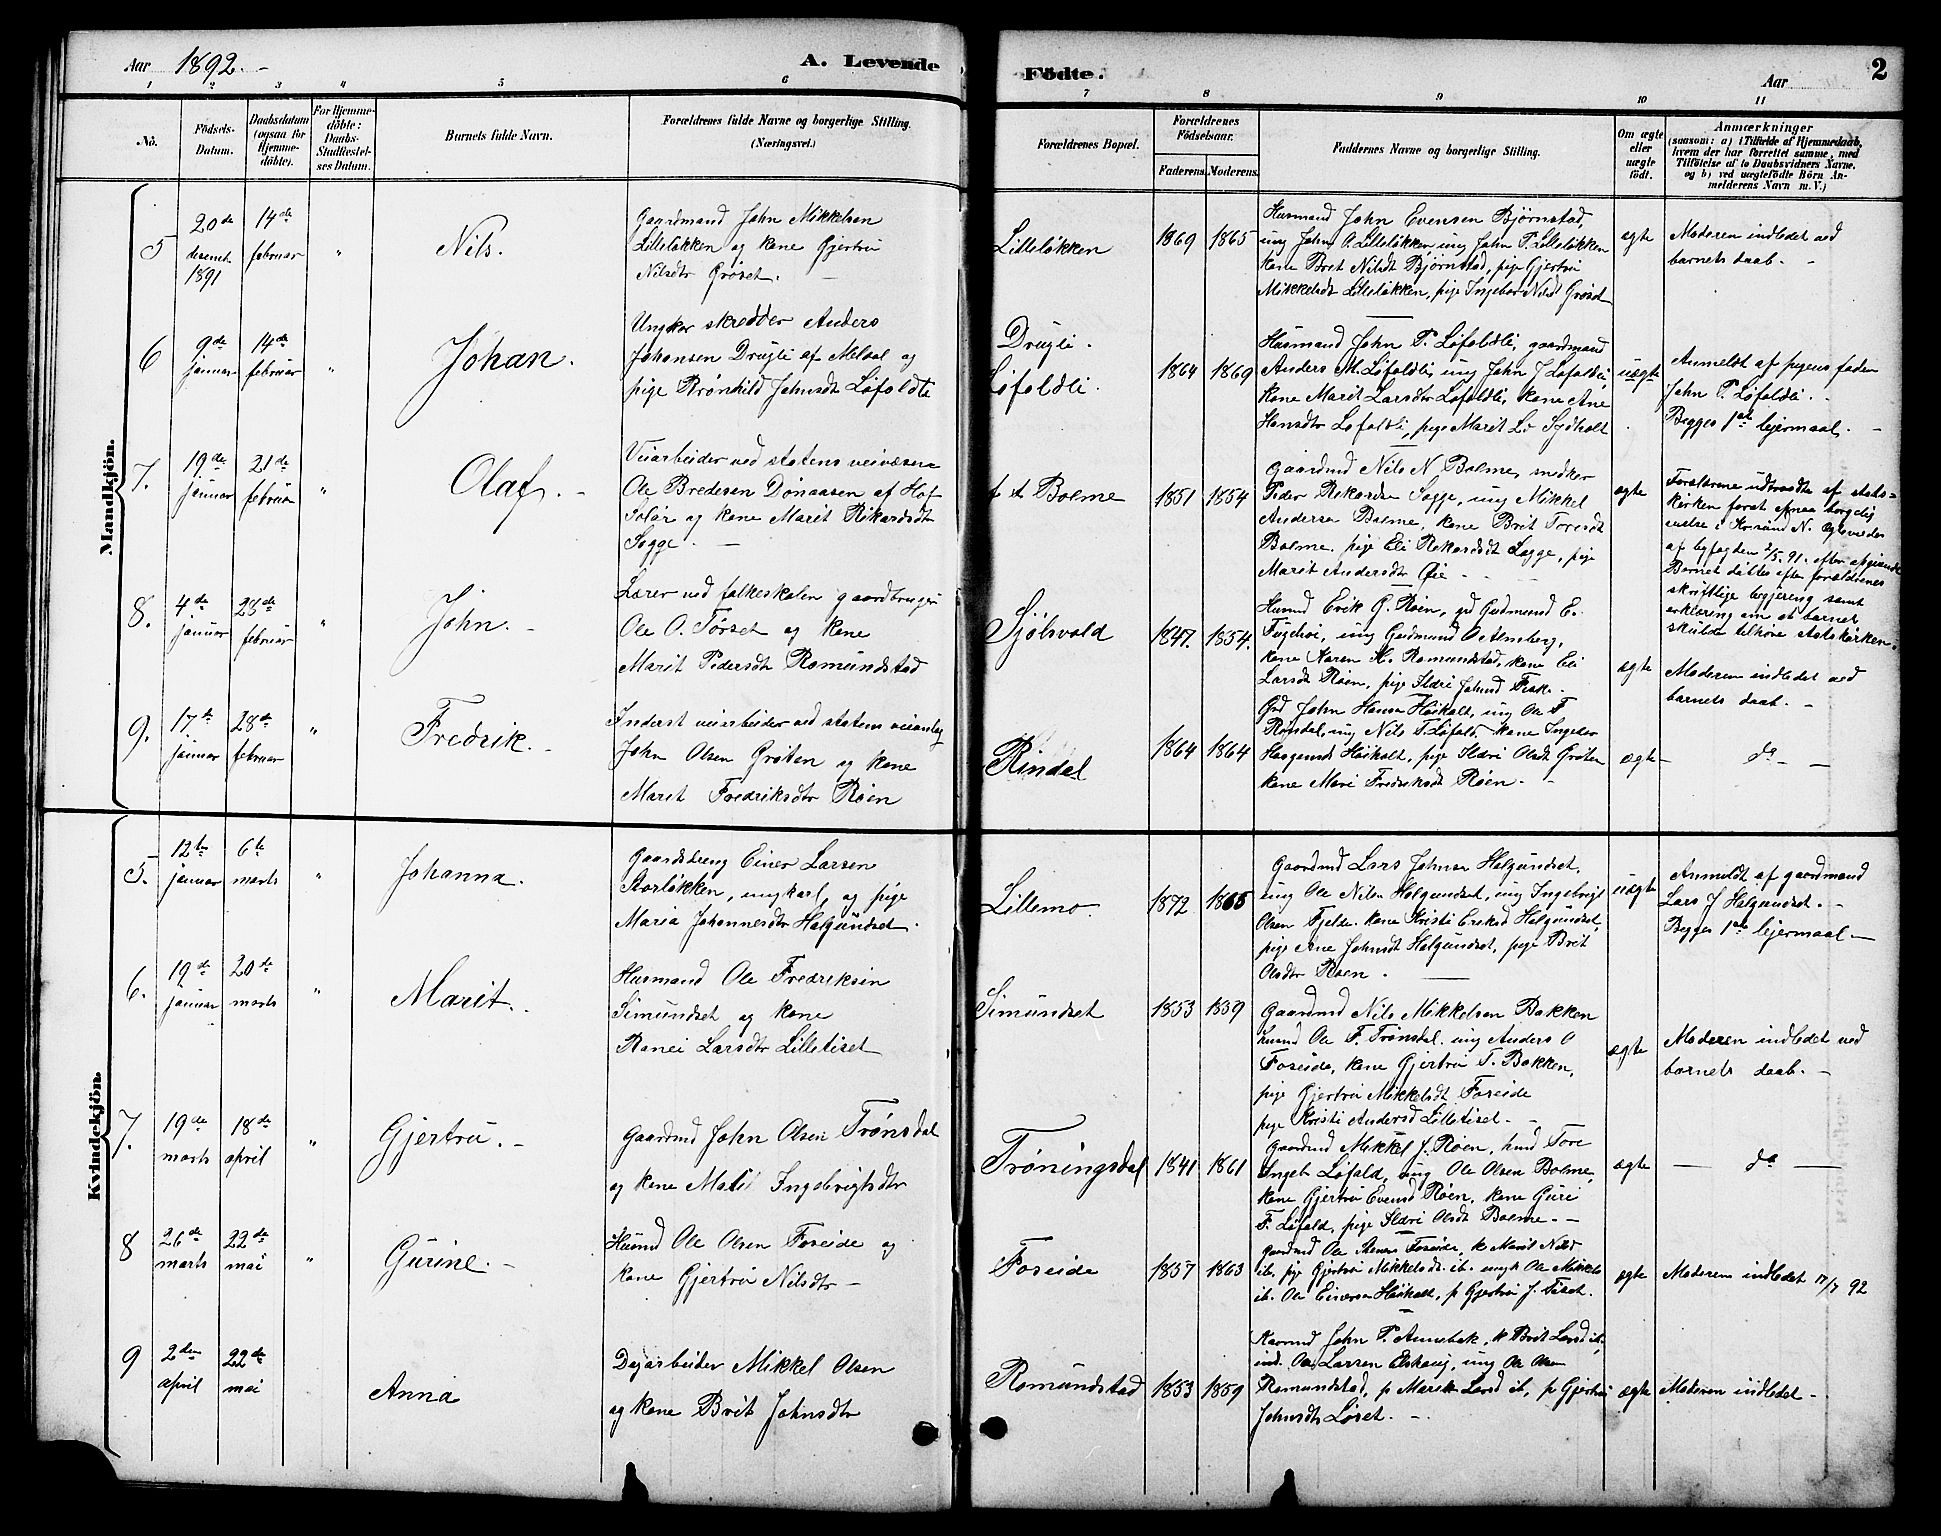 Aar 1892. -
A. Levende
Födte.
Aar
2
1 2 3 4 5 6
7 8 9 10 11
No.
Födsels-
Datum.
Daabsdatum
(ogsaa for
Hjemme-
döbte).
For Hjemme-
döbte:
Daabs-
Stadfæstel-
ses Datum.
Barnets fulde Navn.
Forældrenes fulde Navne og borgerlige Stilling.
(Næringsvei.)
Forældrenes Bopæl.
Forældrenes
Födselsaar.
Faderens. Moderens.
Faddernes Navne og borgerlige Stilling.
Om ægte
eller
uægte
födt.
Anmærkninger
(saasom: a) i Tilfælde af Hjemmedaab,
hvem der har forrettet samme, med
Tilföielse af to Daabsvidners Navne,
og b) ved uægtefödte Börn An-
melderens Navn m. V.)
Mandkjön.
5
20de
desemb.
1891
14de
februar
"
Nils.
Gaardmand John Mikkelsen
Lilleløkken og kone Gjertru
Nilsdtr Grøset.
Lilleløkken
1869 1865
Husmand John Evensen Bjørnstad,
ung John O. Lilleløkken ung John P. Lilleløkken
kone Bret Nilsdt Bjørnstad, pige Gjertru
Mikkelsdt Lilleløkken, pige Ingebor Nilsdt Grøset
ægte
Moderen indledet ved
barnets daab. -
6
9de
januar
14de
februar
"
Johan.
Ungkar skredder Anders
Johansen Drugli af Meldal og
pige Brønhild Johnsdt Løfoldli
Drugli.
Løfoldli.
1864 1869
Husmand John P. Løfoldli, gaardmand
Anders M. Løfoldli, ung John J Løfoldli
kone Marit Larsdtr Løfoldli, kone Ane
Hansdtr Løfoldli, pige Marit Lo Sydhalt
uægte
Anmeldt af pigens fader
John P. Løfoldli.
Begges 1ste lejermaal. -
7.
19de
januar
21de
februar
"
Olaf. -
Veiarbeider ved statens veivæsen
Ole Bredesen Dønaasen af Hof
Solør og kone Marit Rikardsdtr
Sogge. -
Bolme
1851 1854
Gaardmd Nils N. Bolme, snedker
Peder Rekordse Sogge, ung Mikkel
Andersen Bolme, kone Brit Toresdt
Bolme. pige Eli Rekordsdt Sogge, pige
Marit Andersdtr Øie -
ægte
Forældrene udtraadte af stats-
kirken forat opnaa borgerlig
vielse i Krsund N. Ægteviedes
af byfogden 2/5 91. efter afgivende
Barnet døbtes efter forældrenes
skriftlige begjering samt
erklæring om at barnet
skulde tilhøre statskirken.
8.
4de
januar
28de
februar
"
John. -
Lærer ved folkeskolen gaardbruger
Ole O. Tørset og kone
Marit Pedersdt Romundstad
Sjølsvold
1847. 1854.
Husmd Erik G. Røen, gd Gudmund E.
Fugelsøi, ung Gudmund O Almberg,
kone Karen H. Romundstad, kone Eli
Larsdt Røen, pige Sldri Johnsd Fisk.
ægte
Moderen indledet ved
barnets daab. -
9.
17de
januar
28de
februar
"
Fredrik. -
Inderst veiarbeider ved statens veianlæg
John Olsen Grøten og kone
Marit Fredriksdtr Røen
Rindal
1864 1864
Gd John Hansen Heikalt, ung Ole F
Rønsdal, ung Nils T. Løfald. kone Ingebor
Heikalt, pige Sldri Olsdt Grøten
kone Mari Fredriksdt Røen. -
ægte
do -
Kvindekjön.
5.
12te
januar
6te
marts
"
Johanna.
Gaardsdreng Einer Larsen
Storløkken, ungkarl, og pige
Maria Johannesdtr Helgundset.
Lillemo.
1872 1865
Gaardmd Lars Johnsen Helgundset.
ung Ole Nilsen Helgundset, ung Ingebrigt
Olsen Fjelde. kone Kristi Eriksd Helgundset,
pige Ane Johnsdt Helgundset, pige Brit
Olsdtr Røen.
uægte
Anmeldt af gaardmand
Lars J Helgundset. -
Begges 1ste lejermaal -
6.
19de
januar
20de
marts
"
Marit. -
Husmand Ole Fredriksen
Simundset og kone
Ranei Larsdtr Lilletiset
Simundset
1853 1859
Gaardmd Nils Mikkelsen Bakken
husmd Ole F. Trønsdal. ung Anders O
Foseide, kone Gjertru T. Bakken,
pige Gjertru Mikkelsdt Foseide
pige Kristi Andersd Lilletiset. -
ægte
Moderen indledet ved
barnets daab. -
7.
19de
marts
18de
april
"
Gjertru. -
Gaardmd John Olsen Trønsdal
og kone Malil Ingebrigtsdtr
Trøningsdal
1841 1861
Gaardmd Mikkel J. Røen, husmd Tore
Ingebr Løfald, ung Ole Olsen Bolme,
kone Gjertru Evensd Røen, kone Guri
F. Løfald, pige Sldri Olsdt Bolme. -
ægte
- do -
8
26de
marts
22de
mai
"
Gurine. -
Husmd Ole Olsen Foseide og
kone Gjertru Nilsdtr -
Foseide
1857 1863
gaardmd Ole Foseide, k Marit Nilsd
ib. pige Gjertru Mikkelsdt ib. ungk Ole Mikkels
ib. Ole Einersen Heikalt, p Gjertru J. Tiset.
ægte
Moderen indledet 17/7 92
9
2den
april
22de
mai
Anna
Dagarbeider Mikkel Olsen
og kone Brit Johnsdtr
Romundstad
1853 1859
John P. Aunebak, k Brit Larsd ib.
ind. Ole Larsen Elshaug, ung Ole Olsen
Romundstad, p Marit Larsd ib, p Gjertru
Johnsdtr Løset. -
ægte
Moderen indledet -